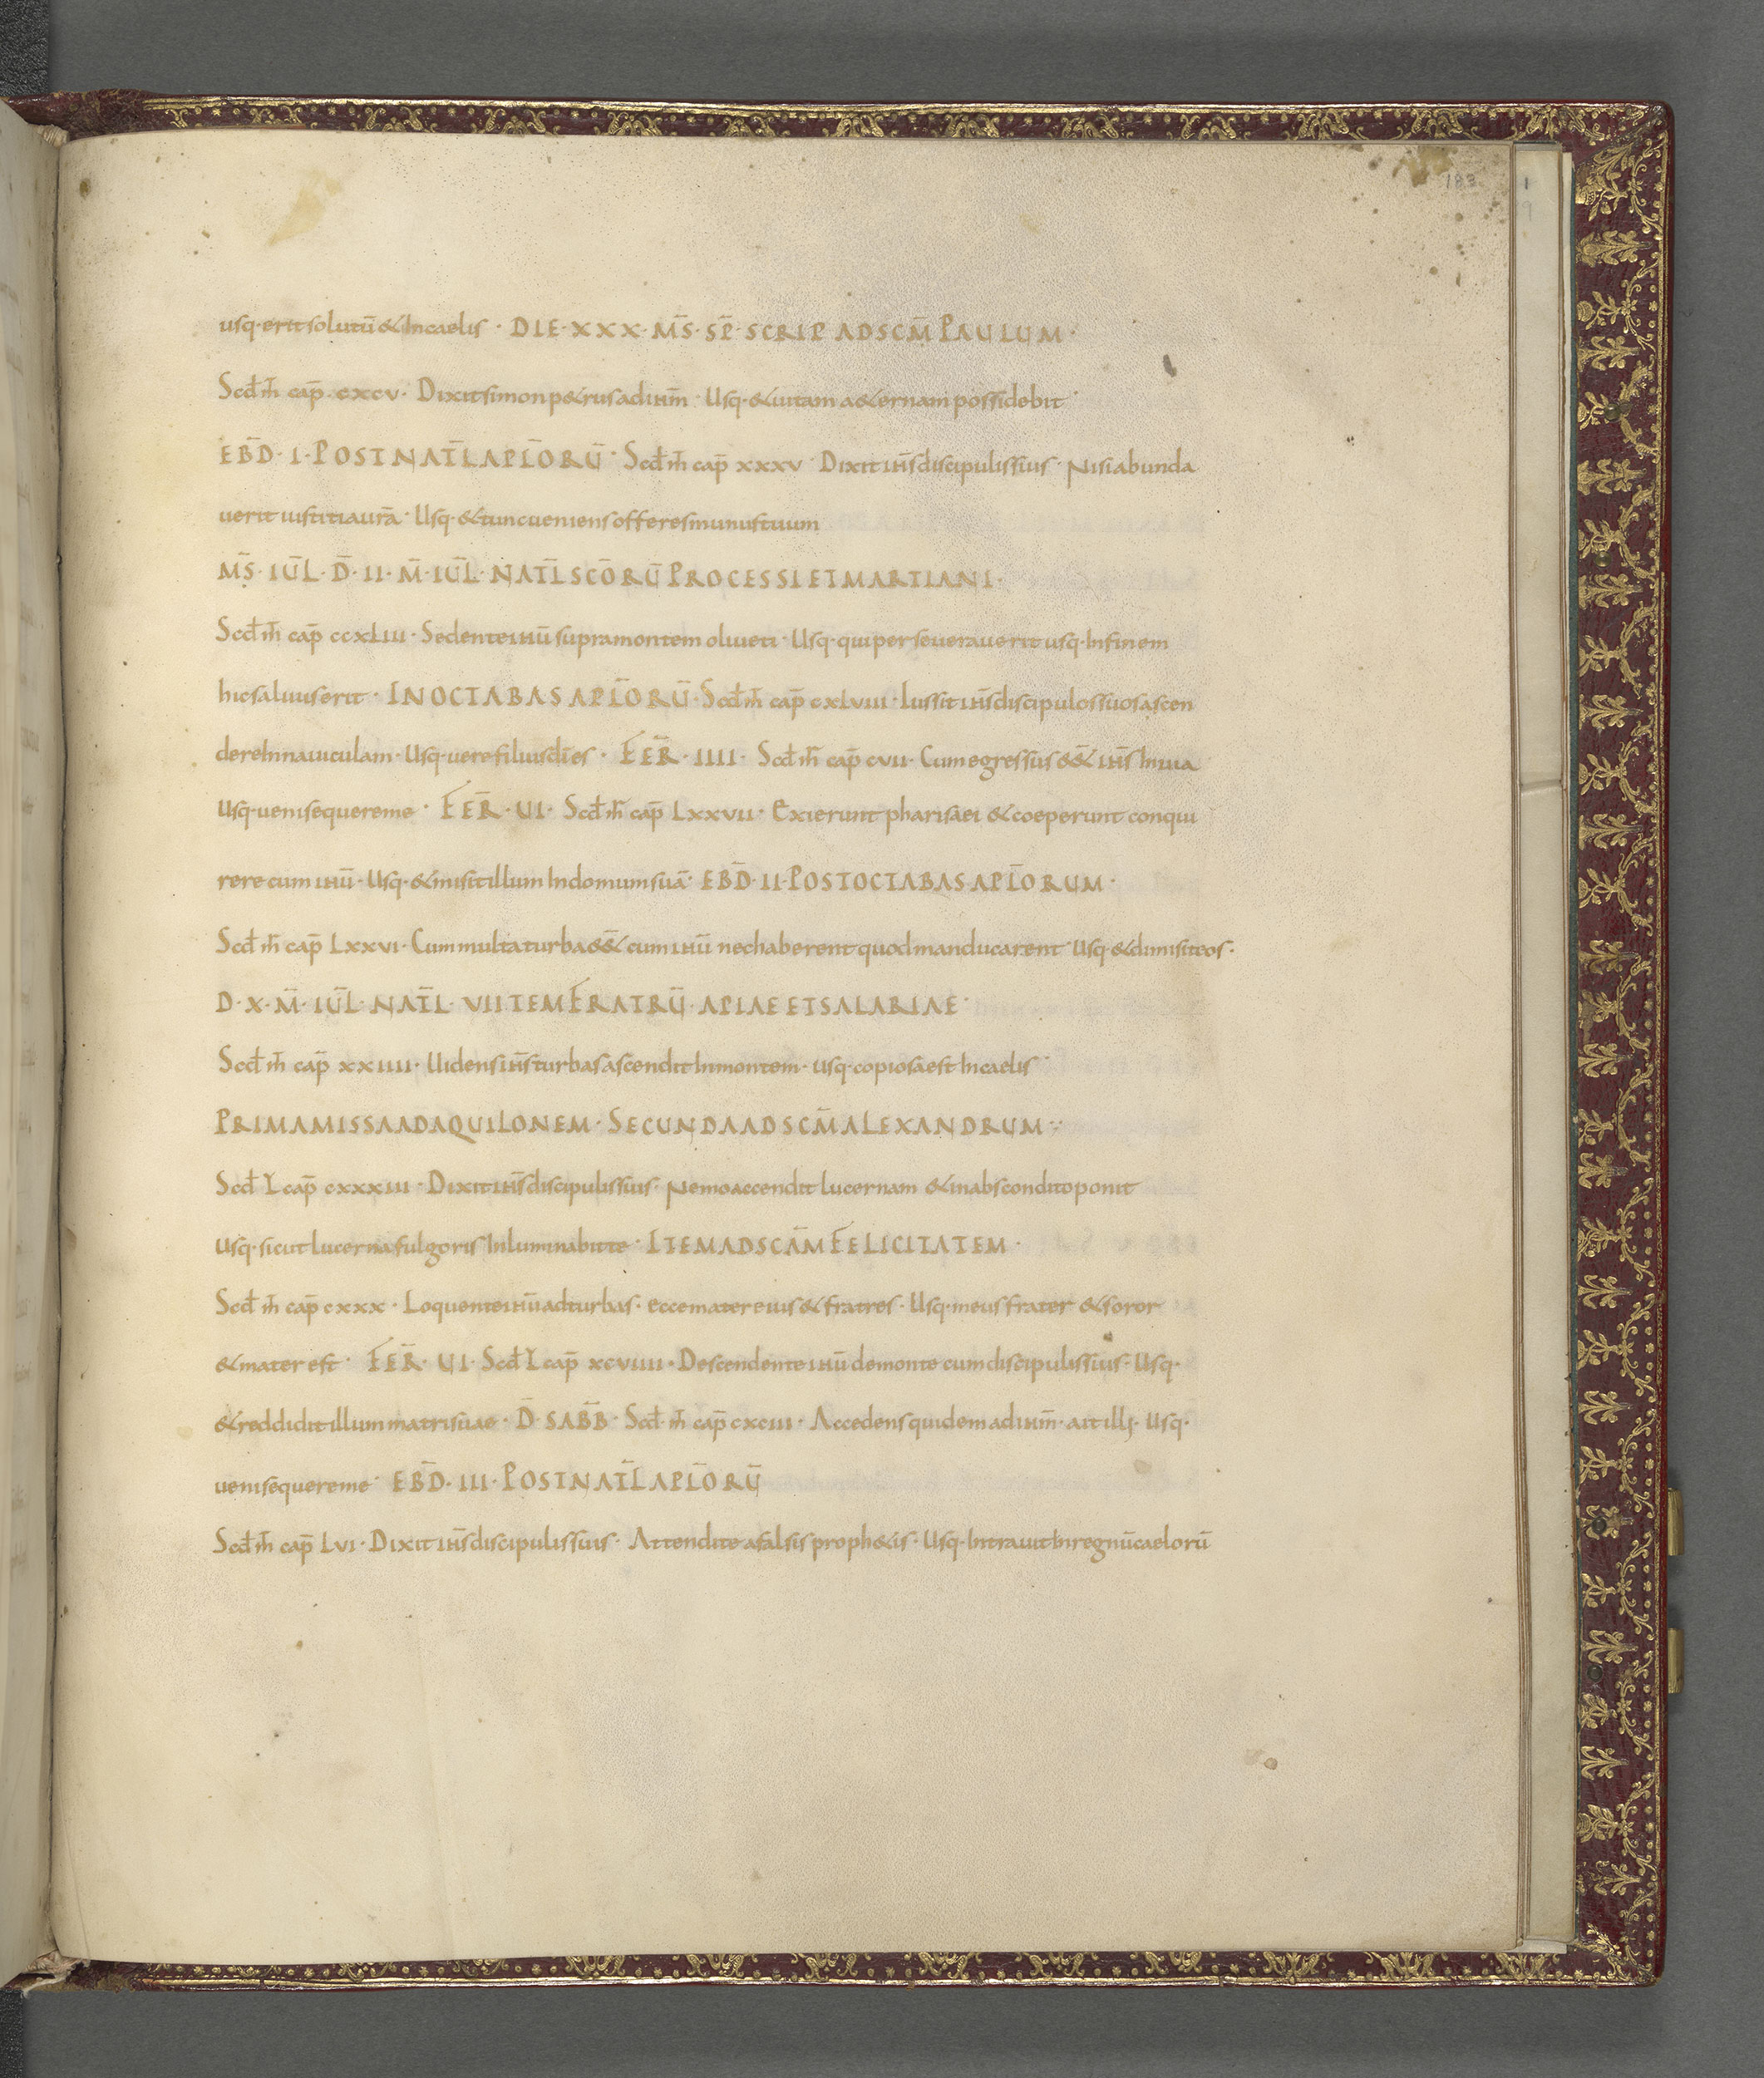 183
usq·erit solutū & In caelis · DIE·XXX·M̄S·SP̄·SCRIP AD SCM̄ PAULUM·
Scd̄ m̄ cap̄ cxcv· Dixit simon p&rus ad ihm̄· Usq·& uitam a&ernam possidebit·
EB̄D·I·POST NAT̄L APL̄ORŪ· Scd̄ m̄ cap̄ xxxv· Dixit ih̄s discipulis suis· Nisi abunda
uerit iustitia ur̄a· Usq·& tunc ueniens offeres munus tuum
M̄S·IŪL·D̄·II·M̄·IŪL·NAT̄L SCŌRŪ PROCESSI ET MARTIANI·
Scd̄ m̄ cap̄ ccxLiii· Sedente ihū supra montem oliueti· Usq·qui perseuerauerit usq·In finem
hic saluus erit· IN OCTABAS APL̄ORŪ· Scd̄ m̄ cap̄ cxLviii· Iussit ih̄s discipulos suos ascen
dere In nauiculam· Usq·uere filius dī es· FER̄·IIII· Scd̄ m̄ cap̄ cvii· Cum egressus ee& ih̄s In uia
Usq·ueni sequere me· FER̄·UI· Scd̄ m̄ cap̄ Lxxvii· Exierunt pharisaei & coeperunt conqui
rere cum ihū· Usq·& misit illum In domum suā· EB̄D·II·POST OCTABAS APL̄ORUM·
Scd̄ m̄ cap̄ Lxxvi· Cum multa turba ee& cum ihū nec haberent quod manducarent· Usq·& dimisit eos·
D·X·M̄·IŪL·NAT̄L·VII TEM FRATRŪ·APIAE ET SALARIAE·
Scd̄ m̄ cap̄ xxiiii· Uidens ih̄s turbas ascendit In montem· usq·copiosa est In caelis·
PRIMA MISSA AD AQUILONEM· SECUNDA AD SCM̄ ALEXANDRUM·
Scd̄ L cap̄ cxxxiii· Dixit ih̄s discipulis suis· Nemo accendit lucernam & in abscondito ponit
Usq·sicut lucerna fulgoris Inluminabit te· ITEM AD SCĀM FELICITATEM·
Scd̄ m̄ cap̄ cxxx· Loquente ihū ad turbas· ecce mater eius & fratres· Usq·meus frater & soror
& mater est· FER̄·UI· Scd̄ L cap̄ xcviiii· Descendente ihū de monte cum discipulis suis· Usq·
& reddidit illum matri suae· D̄·SAB̄B· Scd̄ m̄ cap̄ cxciii· Accedens quidem ad ihm̄· ait illi· Usq·
ueni sequere me· EB̄D·III·POST NAT̄L APL̄ORŪ
Scd̄ m̄ cap̄ Lvi· Dixit ih̄s discipulis suis· Attendite a falsis proph&is· Usq·Intrauit In regnū caelorū